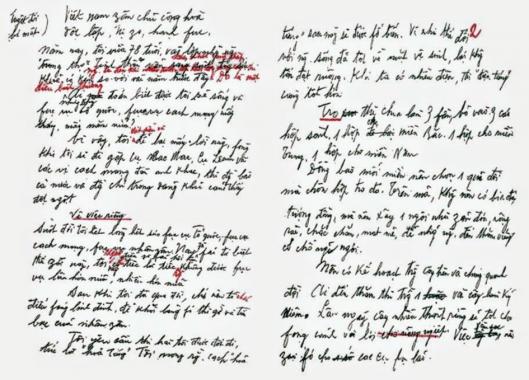 Tuyệt đối
bí mật ) Việt nam zân chủ cộng hoà
độc lập, tự zo, hạnh fúc
Năm nay, tôi vừa 78 tuổi, vào lớp những người
"trung thọ". Tinh thần
khoẻ, có kém so với vài năm trước đây Đó là một
điều bình thường
Ai mà đoán biết được tôi sống và
fục vụ tổ quốc, fục vụ cách mạng mấy
tháng, mấy năm nữa?
Vì vậy, tôi để mấy lời này, fòng
khi tôi sẽ đi gặp cụ Mac, cụ Lenin và
các vị cách mạng đàn anh khác, thì đồng bào
cả nước và đồng chí trong Đảng khỏi cảm thấy
đột ngột
Về việc riêng
Suốt đời tôi hết lòng hết sức fục vụ tổ quốc, fục vụ
cách mạng, fục vụ nhân zân. Nay zù fải từ biệt
thế giới này, tôi không có điều gì fải hối hận, chỉ tiếc là tiếc không được fục
vụ lâu hơn nữa, nhiều hơn nữa
Sau khi tôi đã qua đời, chớ nên tổ chức
điếu fúng linh đình, để khỏi lãng fí thì giờ và tiền
bạc của nhân zân.
Tôi yêu cầu thi hài tôi được đốt đi,
tức là "hoả táng". Tôi mong rằng cách hoả
táng sau này sẽ được fổ biến. Vì như thế đối 2
với người sống đã tốt về mặt vệ sinh, lại không
tốn đất ruộng. Khi ta có nhiều điện, thì "điện táng"
càng tốt hơn.
Tro xương thì chia làm 3 fần, bỏ vào 3 cái
hộp sành. 1 hộp cho miền Bắc. 1 hộp cho miền
Trung. 1 hộp cho miền Nam
Đồng bào mỗi miền nên chọn 1 quả đồi
mà chôn hộp tro đó. Trên mả, không nên có bia đá
tượng đồng, mà nên xây 1 ngôi nhà giản đơn, rộng
rãi, chắc chắn, mát mẻ, để những người đến thăm viếng
có chỗ nghỉ ngơi.
Nên có kế hoạch trồng cây trên và chung quanh
đồi. Ai đến thăm thì trồng 1 cây làm kỷ
niệm. Lâu ngày, cây nhiều thành rừng sẽ tốt cho
fong cảnh và lợi cho nông nghiệp. Việc săn sóc cây nên
giao fó cho các cụ fụ lão.